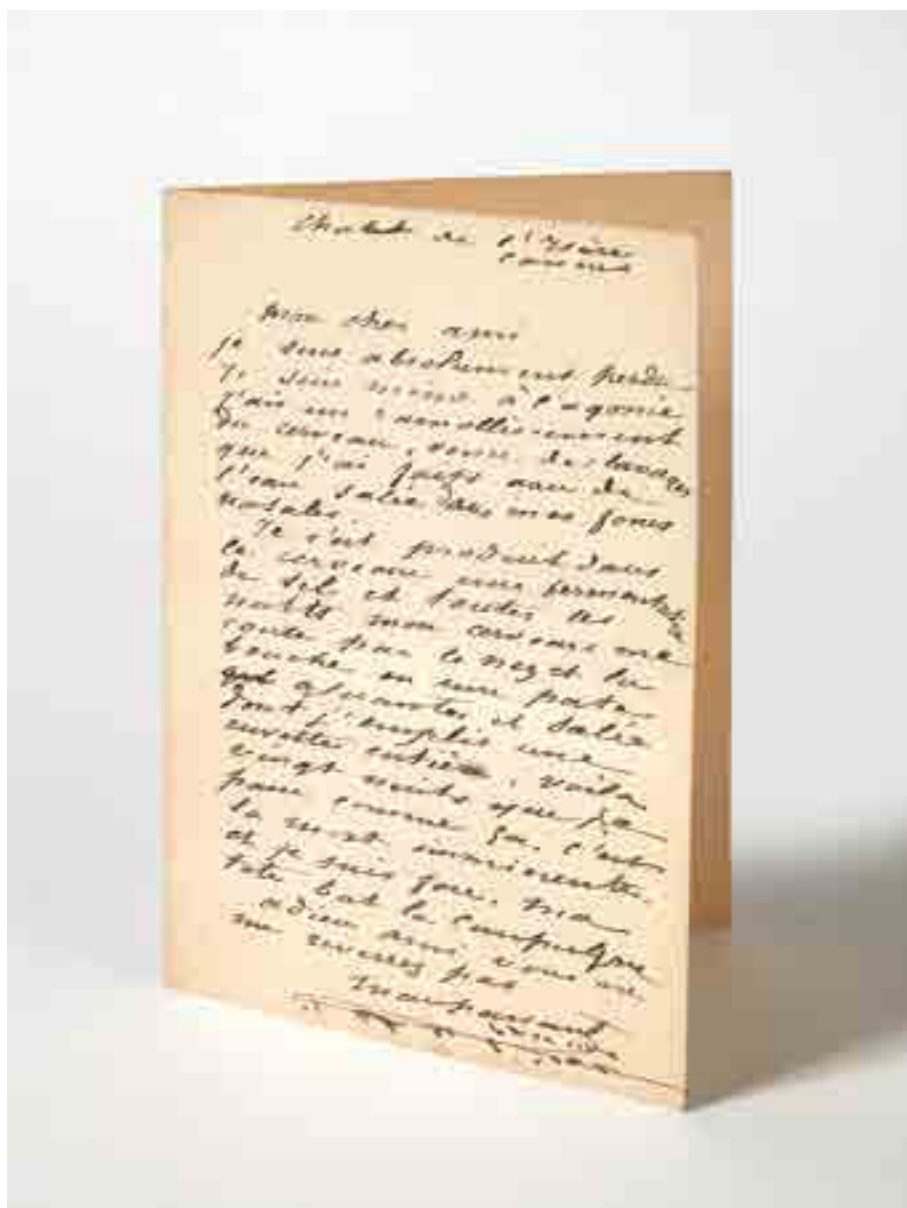 Chalet de l'Isère
Cannes
Mon cher ami
je suis absolument perdu
je suis même à l'agonie
j'ai un ramollissement
du cerveau venu des lavages
que j'ai faits avec de
l'eau salée dans mes fosses
nasales.
Il s'est produit dans
le cerveau une fermentation
de sel et toutes les
nuits mon cerveau me
coule par le nez et la
bouche en une pate
gluante et salée
dont j'emplis une
cuvette entière. voila
vingt nuits que je
passe comme ça. c'est
la mort imminente.
et je suis fou. ma
tete bat la campagne
adieu ami, vous ne
me reverrez pas
Maupassant